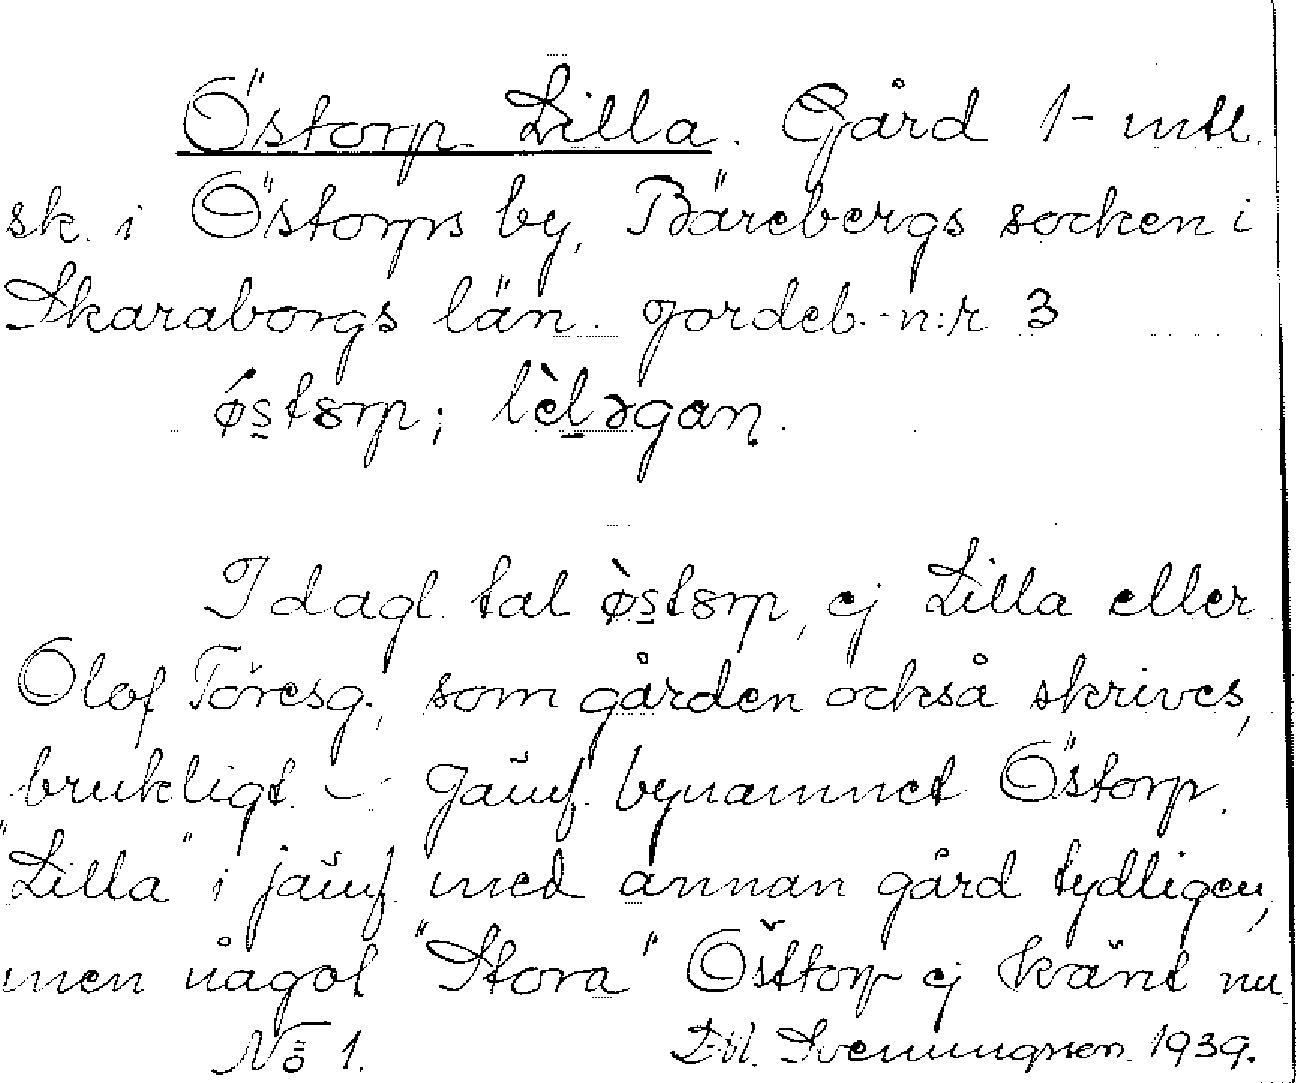 Östorp Lilla. Gård 1- mtl.
sk. i Östorps by, Bärebergs socken i
Skaraborgs län. Jordeb.-n:r 3
ǿs̲tɤrp; lèl̲əgaɳ.
I dagl. tal ø̀s̲tɤrp, ej Lilla eller
Olof Töresg., som gården också skrives,
brukligt. - Jämf. bynamnet Östorp.
"Lilla" i jämf. med annan gård tydligen,
men något "Stora" Östtorp ej känt nu
Nö 1. Svenungsson. 1939.